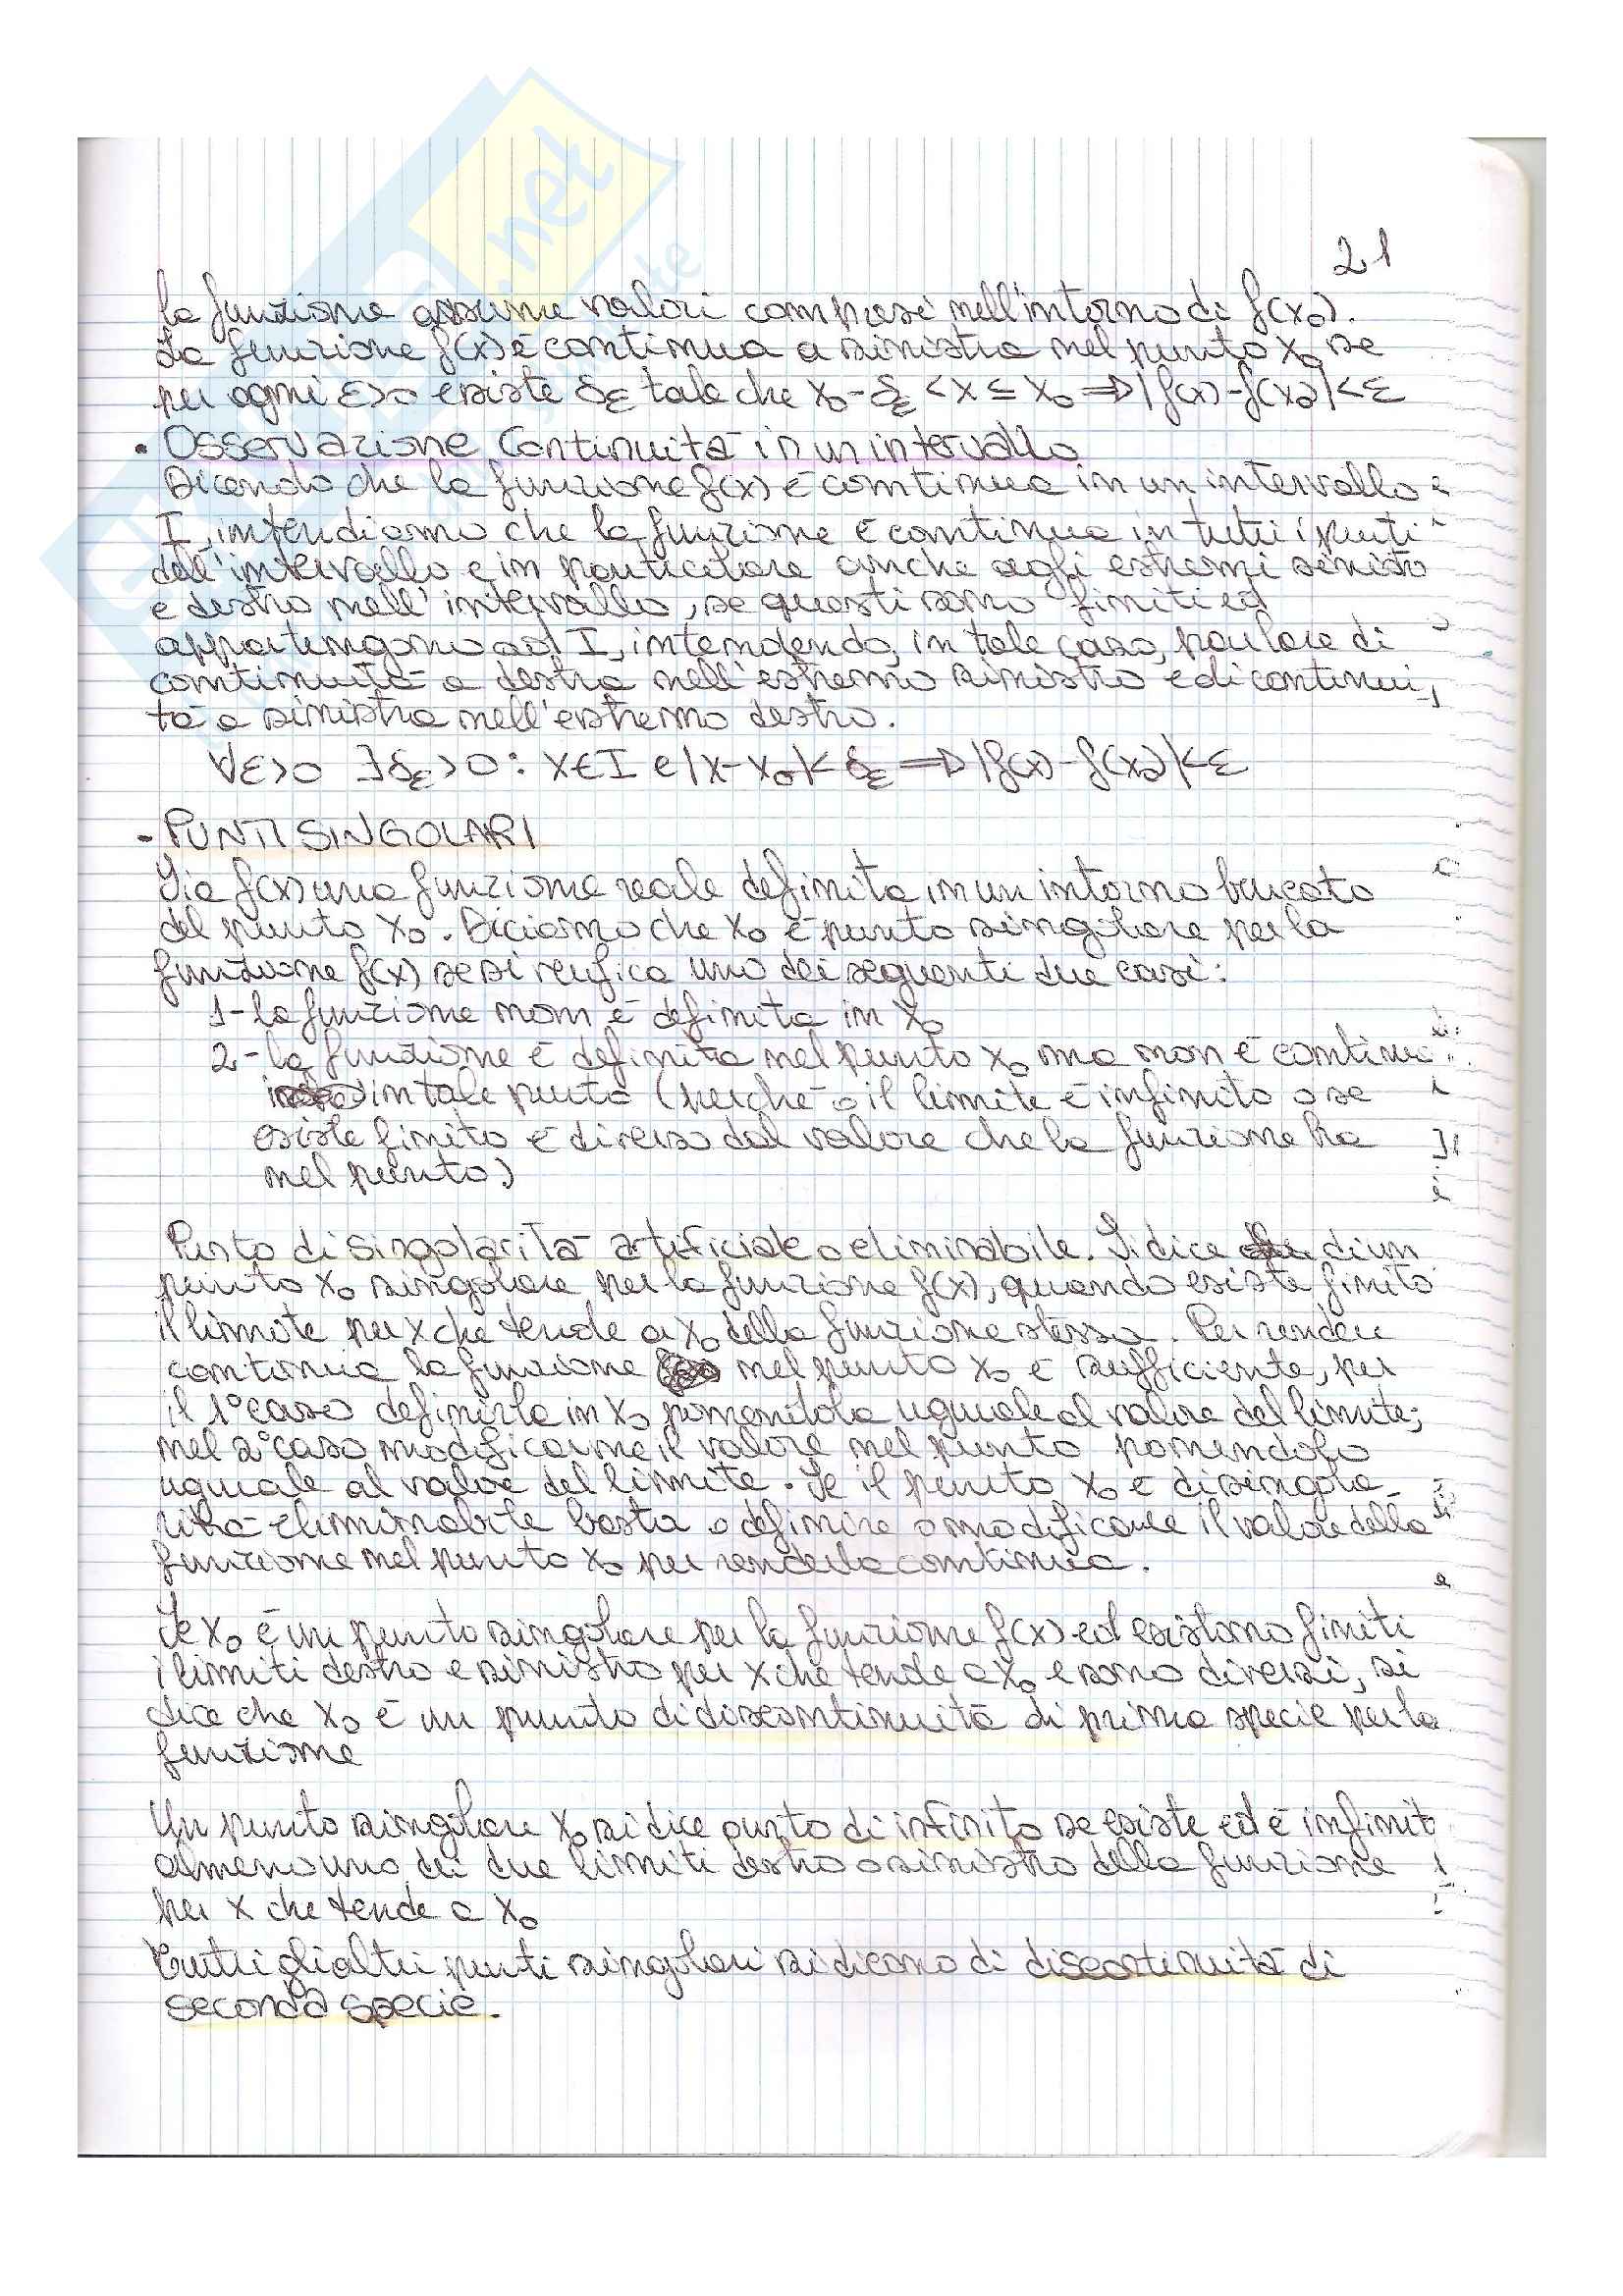 21
la funzione assume valori compresi nell'intorno di f(x₀).
La funzione f(x) è continua a sinistra nel punto x₀ se
per ogni ε>0 esiste δε tale che x₀-δε < x ≤ x₀ ⇒ |f(x)-f(x₀)|<ε
• Osservazione Continuità in un intervallo
Dicendo che la funzione f(x) è continua in un intervallo
I, intendiamo che la funzione è continua in tutti i punti
dell'intervallo e in particolare anche agli estremi sinistro
e destro nell'intervallo, se questi sono finiti ed
appartengono ad I, intendendo, in tale caso, parlare di
continuità a destra nell'estremo sinistro e di continui,
tà a sinistra nell'estremo destro.
∀ε>0 ∃δε>0: x∈I e |x-x₀|<δε ⇒ |f(x)-f(x₀)|<ε
- PUNTI SINGOLARI
Sia f(x) una funzione reale definita in un intorno bucato
del punto x₀. Diciamo che x₀ è punto singolare per la
funzione f(x) se si verifica uno dei seguenti due casi:
1- la funzione non è definita in x₀
2- la funzione è definita nel punto x₀ ma non è continua
in tale punto (perché o il limite è infinito o se
esiste finito è diverso dal valore che la funzione ha
nel punto)
Punto di singolarità artificiale o eliminabile. Si dice di un
punto x₀ singolare per la funzione f(x), quando esiste finito
il limite per x che tende a x₀ della funzione stessa. Per rendere
continua la funzione nel punto x₀ è sufficiente, per
il 1° caso definirla in x₀ ponendola uguale al valore del limite;
nel 2° caso modificarne il valore nel punto ponendolo
uguale al valore del limite. Se il punto x₀ è di singola-
rità eliminabile basta o definire o modificare il valore della
funzione nel punto x₀ per renderla continua.
Se x₀ è un punto singolare per la funzione f(x) ed esistono finiti
i limiti destro e sinistro per x che tende a x₀ e sono diversi, si
dice che x₀ è un punto di discontinuità di prima specie per la
funzione
Un punto singolare x₀ si dice punto di infinito se esiste ed è infinit
almeno uno dei due limiti destro o sinistro della funzione
per x che tende a x₀
Tutti gli altri punti singolari si dicono di discontinuità di
seconda specie.